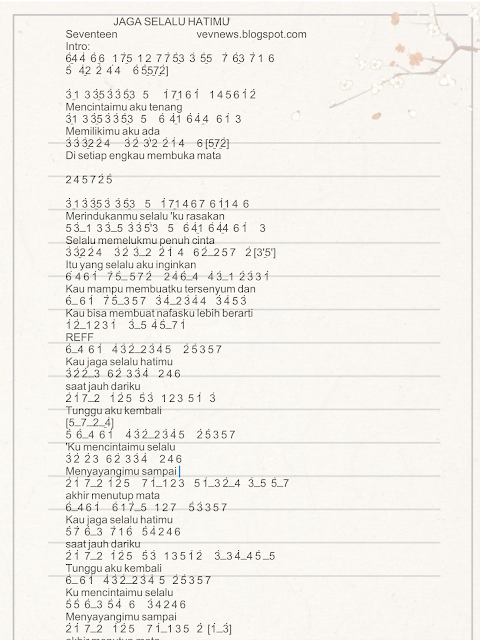 JAGA SELALU HATIMU
Seventeen vevnews.blogspot.com
Intro:
644 66 175 12 7753 3 55 7 63 7 1 6
5 42 2 44 6 5572]
31 3353353 5 17161 145612
Mencintaimu aku tenang
31 3353353 5 6 41 644 61 3
Memilikimu aku ada
333224 32 3'2 214 6[572]
Di setiap engkau membuka mata
245725
313353353 5 171467 61146
Merindukanmu selalu 'ku rasakan
53_1 33_5 335'3 5 641 644 61 3
Selalu memelukmu penuh cinta
33224 323_2 214 62_257 2[3'5']
Itu yang selalu aku inginkan
6461 75_572 246_4 43_1 2331
Kau mampu membuatku tersenyum dan
6_61 75_357 34_2344 3453
Kau bisa membuat nafasku lebih berarti
12_1231 3_5 45_71
REFF
6_461 432_2345 25357
Kau jaga selalu hatimu
322_3 62 334 246
saat jauh dariku
217_2 125 53 12351 3
Tunggu aku kembali
[5_7_2_4]
5 6_461 432_2345 25357
'Ku mencintaimu selalu
32 23 62 334 246
Menyayangimu sampai
217_2 125 71_123 51_32_4 3_55_7
akhir menutup mata
6_461 617_5 127 53357
Kau jaga selalu hatimu
57 6_3 716 54246
saat jauh dariku
217_2 125 53 13512 3_34_45_5
Tunggu aku kembali
6_61 432_2345 25357
Ku mencintaimu selalu
55 6_3 54 6 34246
Menyayangimu sampai
217_2 125 71_135 2 [1_3]
akhir menutup mata